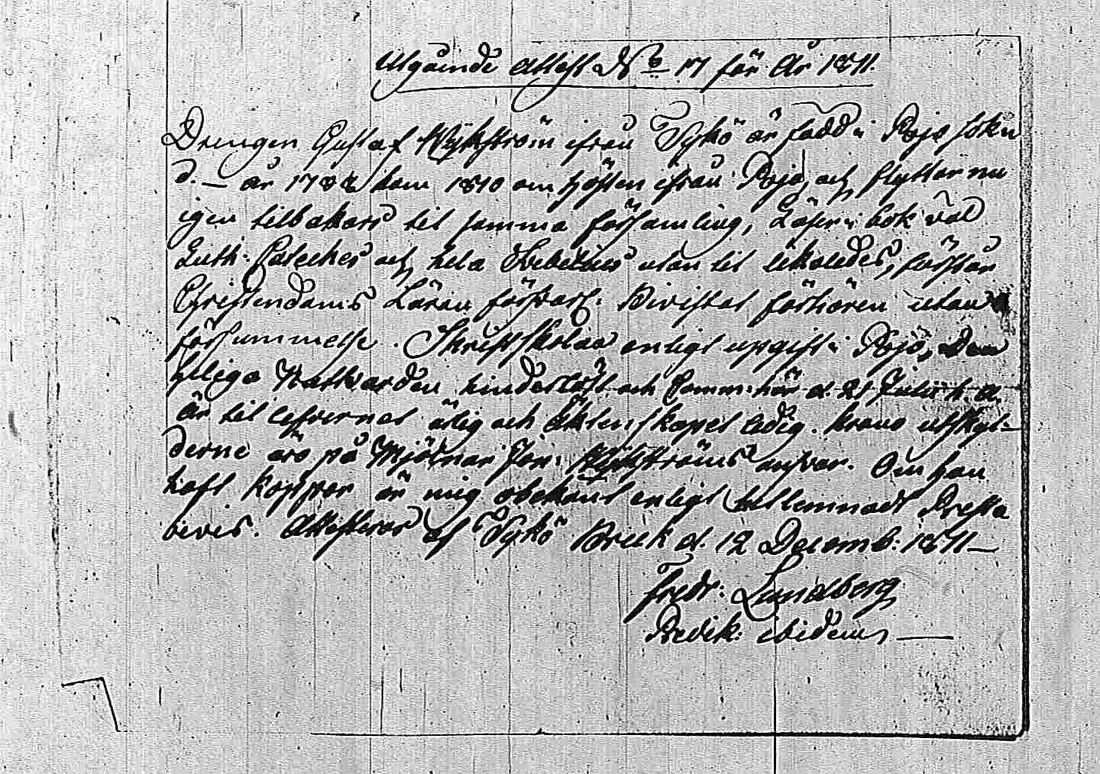 Utgående Attest N:o 17 för År 1811.
Drengen Gustaf Nykström ifrån Tykö är född i Pojo sokn
d. — år 1788 kom 1810 om hösten ifrån Pojo, och flyttar nu
igen tilbakars til samma församling, Läser i bok väl
Luth: Cateches och hela Svebilius utan til likaledes, förstår
Christendoms Läran försvarl: Bivistat förhören utan
försummelse. Skriftskolan enligt upgift i Pojo, Den
heliga Nattvarden hinderlöst och Comm: här d. 21 Julii h. a.
är til lefvernet ärlig och Äktenskapet ledig. krono utskyl-
derne äro på Mjölnar Joh: Nykströms ansvar. Om han
haft koppor är mig obekant enligt tillemnadt Presta
bevis. Attesteras af Tykö Bruk d. 12 Decemb: 1811 —
Fredr: Lundberg
Predik: ibidem —